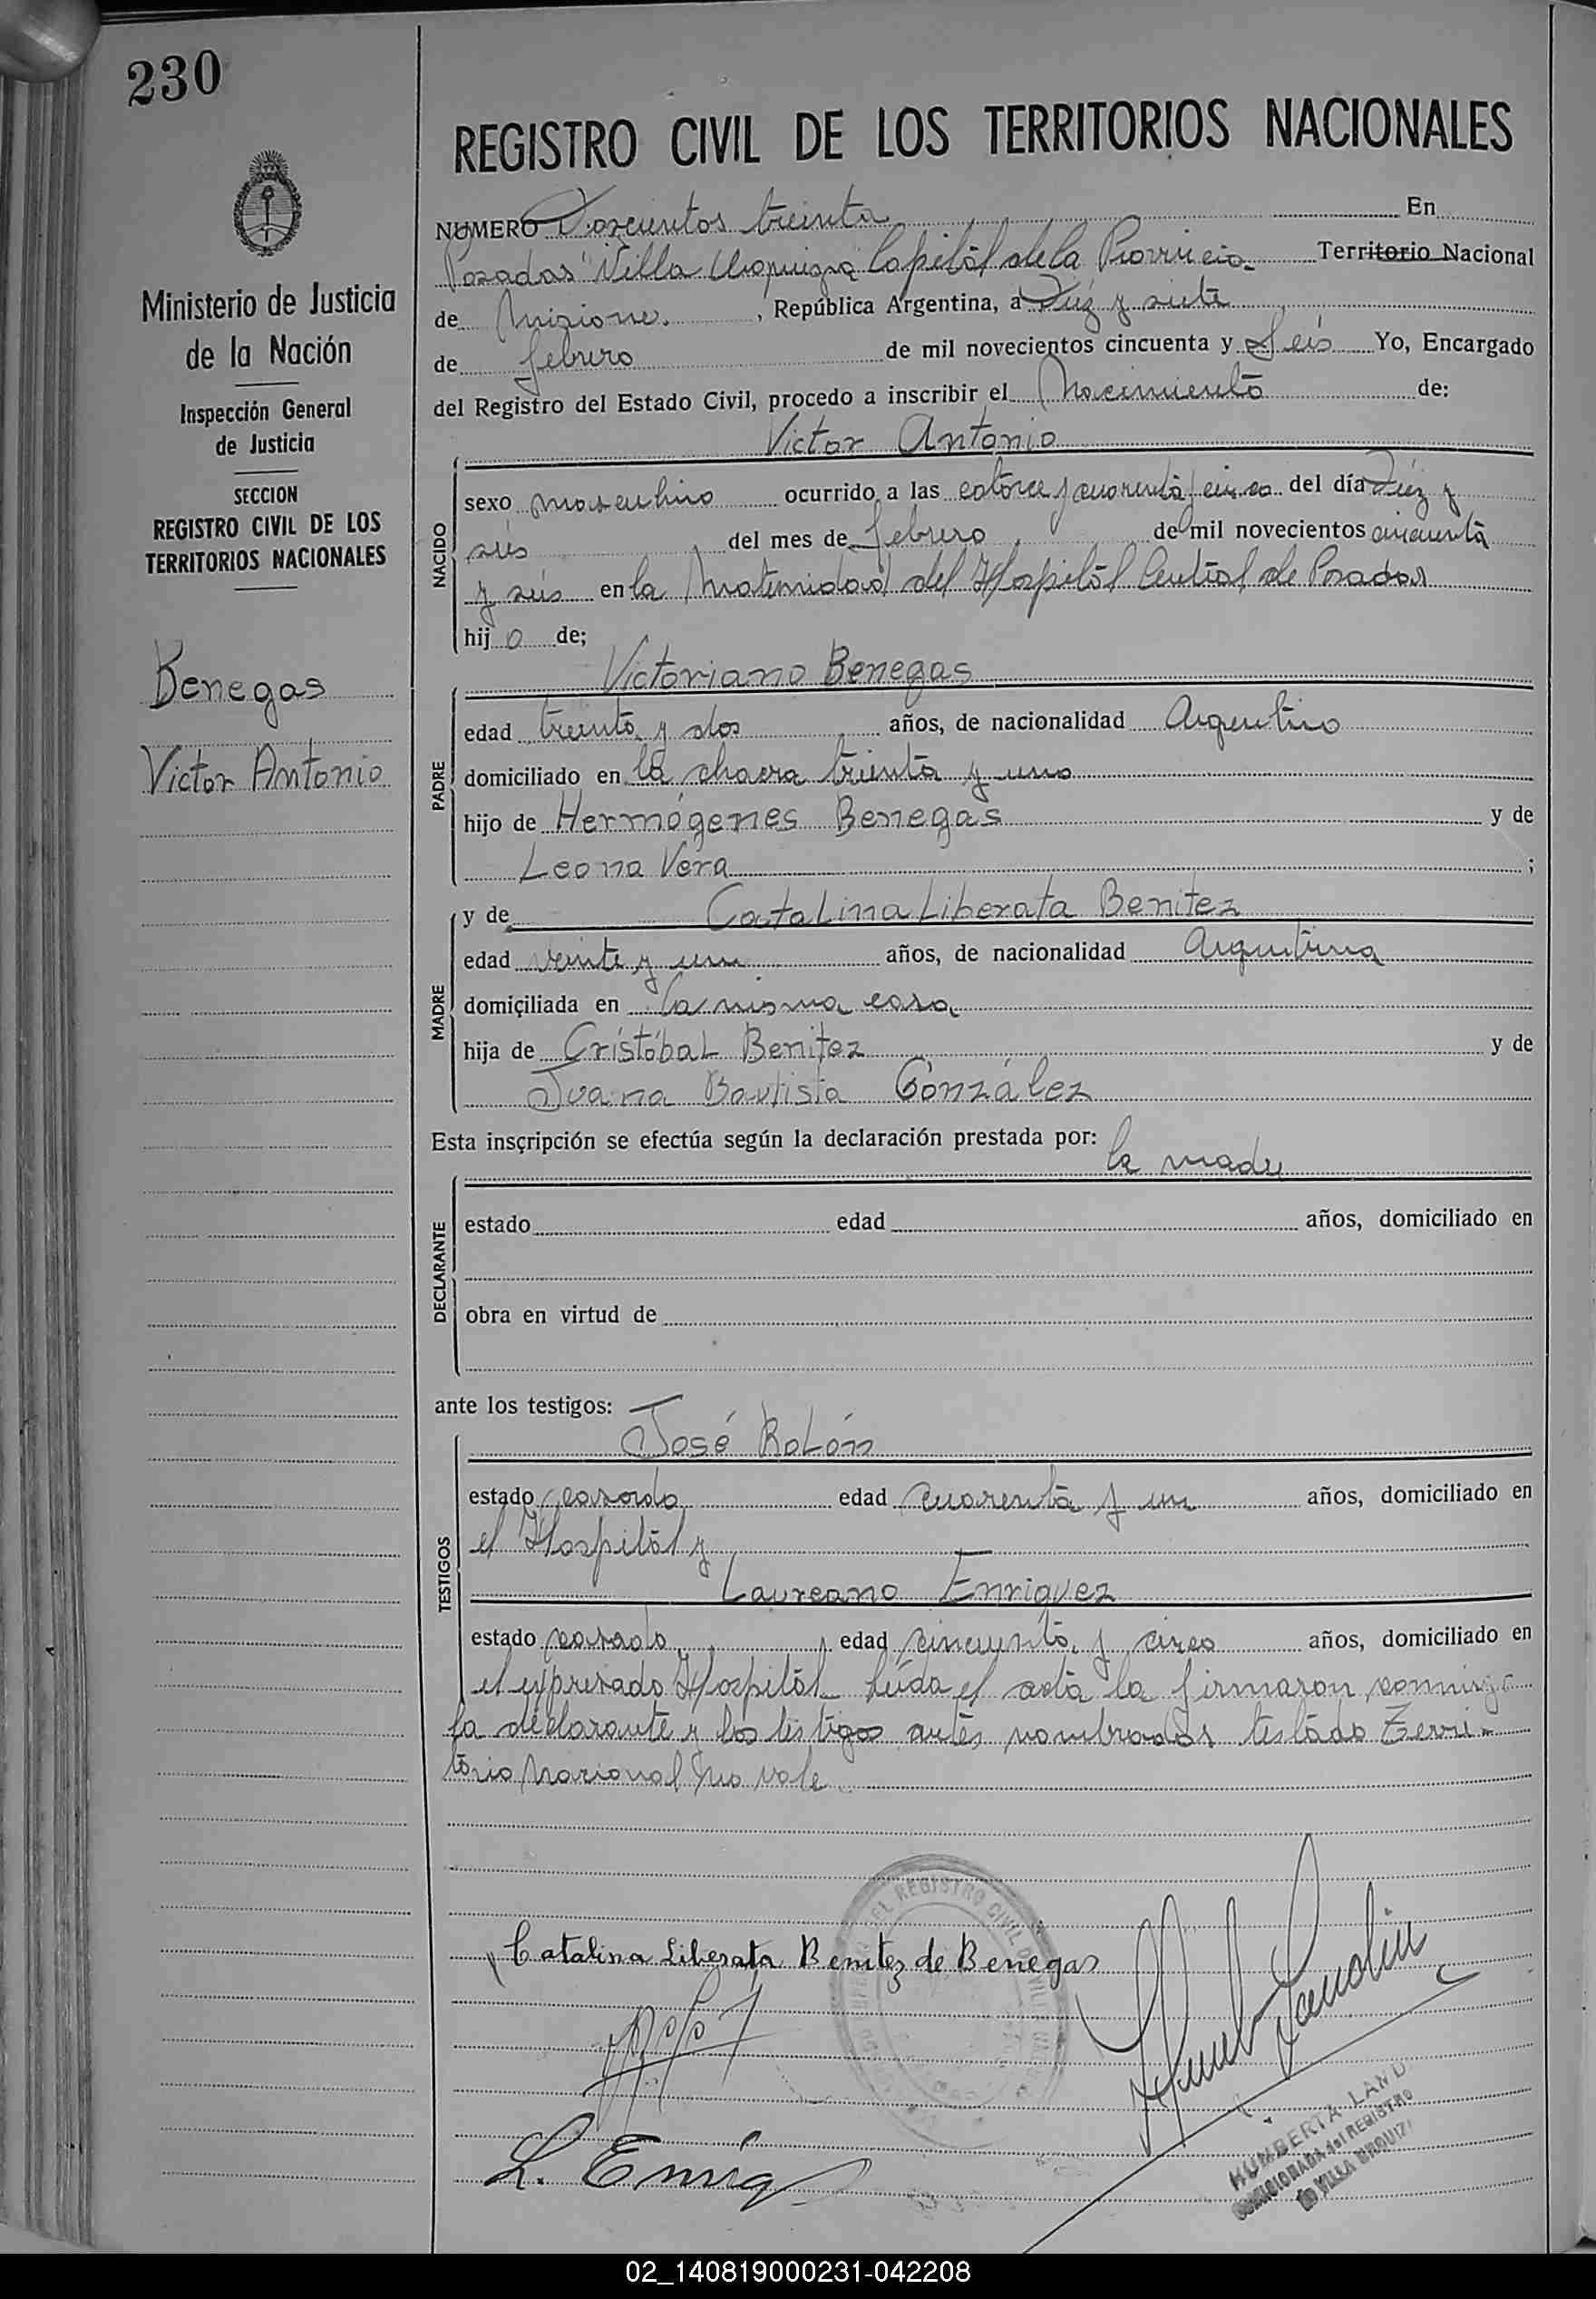 230
Ministerio de Justicia
de la Nación
Inspección General
de Justicia
SECCION
REGISTRO CIVIL DE LOS
TERRITORIOS NACIONALES
Benegas
Victor Antonio
REGISTRO CIVIL DE LOS TERRITORIOS NACIONALES
NUMERO Doscientos treinta En
Posadas "Villa Urquiza Capital de la Provincia Territorio Nacional
de Misiones. , República Argentina, a Diez y siete
de febrero de mil novecientos cincuenta y Seis Yo, Encargado
del Registro del Estado Civil, procedo a inscribir el Nacimiento de:
Victor Antonio
NACIDO
sexo masculino ocurrido a las catorce y cuarenta y cinco del día Diez y
seis del mes de febrero de mil novecientos cincuenta
y seis en la Maternidad del Hospital Central de Posadas
hij o de;
Victoriano Benegas
PADRE
edad treinta y dos años, de nacionalidad Argentino
domiciliado en la chacra treinta y uno
hijo de Hermógenes Benegas y de
Leona Vera ;
MADRE
y de Catalina Liberata Benitez
edad veinte y un años, de nacionalidad Argentina
domiciliada en la misma casa
hija de Cristóbal Benitez y de
Juana Bautista González
Esta inscripción se efectúa según la declaración prestada por:
la madre
DECLARANTE
estado edad años, domiciliado en
obra en virtud de
ante los testigos:
José Rolón
TESTIGOS
estado casado edad cuarenta y un años, domiciliado en
el Hospital y
Laureano Enriquez
estado casado, edad cincuenta y cinco años, domiciliado en
el expresado Hospital Leída el acta la firmaron conmigo
la declarante y los testigos antes nombrados testado Terri-
torio Nacional no vale
REGISTRO CIVIL DE VILLA
Catalina Liberata Benitez de Benegas
L. Enriq
HUMBERTA LAND
COMISIONADA del REGISTRO
VILLA URQUIZA
02_140819000231-042208